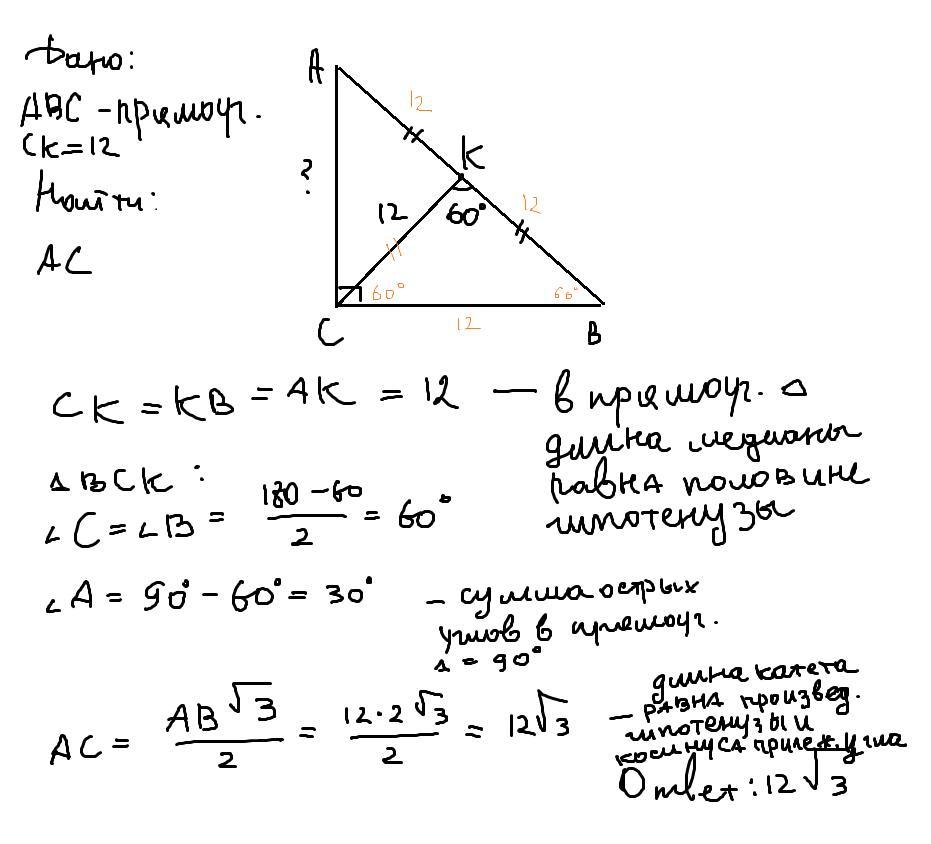 Дано:
ABC - прямоуг.
CK = 12
Найти:
AC
A
12
K
?
12
60°
12
60°
60°
C
12
B
CK = KB = AK = 12 — в прямоуг. △
длина медианы
равна половине
гипотенузы
△ BCK:
∠C = ∠B = (180 - 60)/2 = 60°
∠A = 90° - 60° = 30°
- сумма острых
углов в прямоуг.
△ = 90°
AC = AB√3/2 = 12·2√3/2 = 12√3
длина катета
— равна произвед.
гипотенузы и
косинуса прилеж. угла
Ответ: 12√3